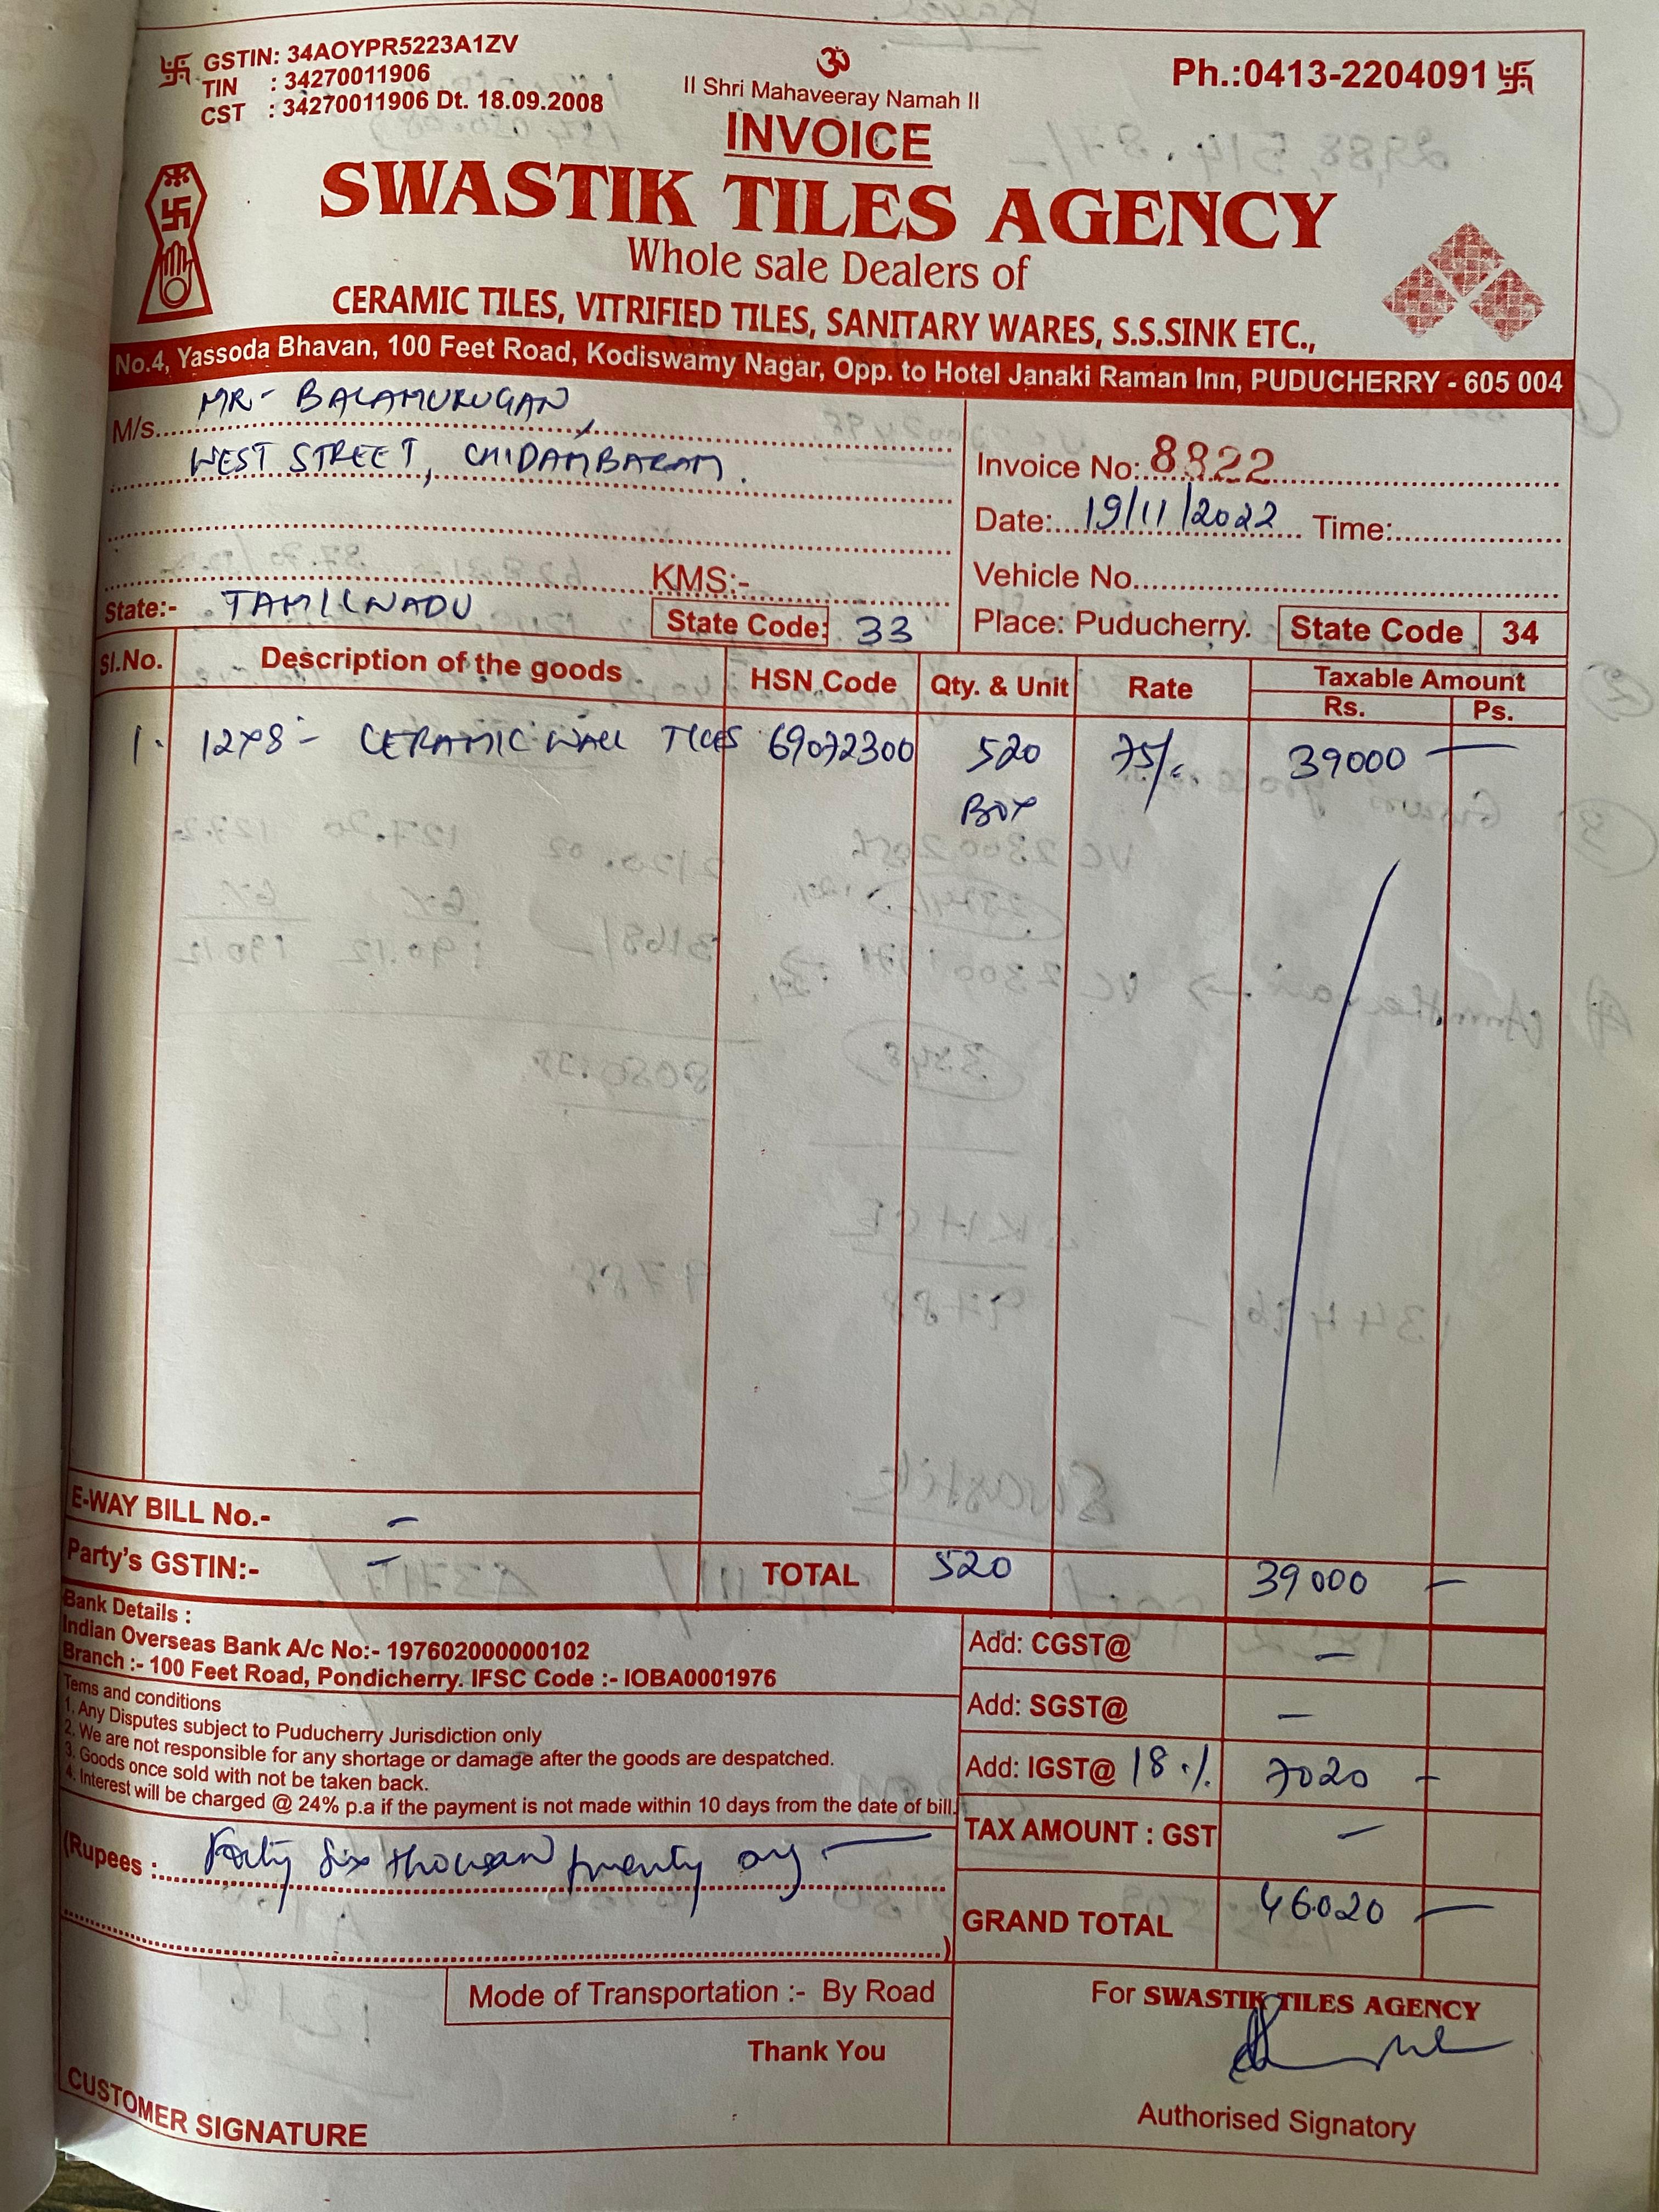 GSTIN: 34AOYPR5223A1ZV
TIN : 34270011906
CST : 34270011906 Dt. 18.09.2008
ॐ
II Shri Mahaveeray Namah II
Ph.:0413-2204091
INVOICE
SWASTIK TILES AGENCY
Whole sale Dealers of
CERAMIC TILES, VITRIFIED TILES, SANITARY WARES, S.S.SINK ETC.,
No.4, Yassoda Bhavan, 100 Feet Road, Kodiswamy Nagar, Opp. to Hotel Janaki Raman Inn, PUDUCHERRY - 605 004
M/s. MR- BALAMURUGAN,
WEST STREET, CHIDAMBARAM.
KMS:-
State:- TAMILNADU State Code: 33
Invoice No: 8822
Date: 19/11/2022 Time:
Vehicle No.
Place: Puducherry. State Code 34
Sl.No. Description of the goods HSN Code Qty. & Unit Rate Taxable Amount
Rs. Ps.
1. 12x8 - CERAMIC WALL TILES 69072300 520 75/- 39000 —
BOX
E-WAY BILL No.- –
Party's GSTIN:- – TOTAL 520 39000 –
Bank Details :
Indian Overseas Bank A/c No:- 197602000000102
Branch :- 100 Feet Road, Pondicherry. IFSC Code :- IOBA0001976
Tems and conditions
1. Any Disputes subject to Puducherry Jurisdiction only
2. We are not responsible for any shortage or damage after the goods are despatched.
3. Goods once sold with not be taken back.
4. Interest will be charged @ 24% p.a if the payment is not made within 10 days from the date of bill.
(Rupees : Forty Six thousand twenty only —
)
Add: CGST@ –
Add: SGST@ –
Add: IGST@ 18 % 7020 –
TAX AMOUNT : GST –
GRAND TOTAL 46020 —
Mode of Transportation :- By Road
Thank You
CUSTOMER SIGNATURE
For SWASTIK TILES AGENCY
Authorised Signatory